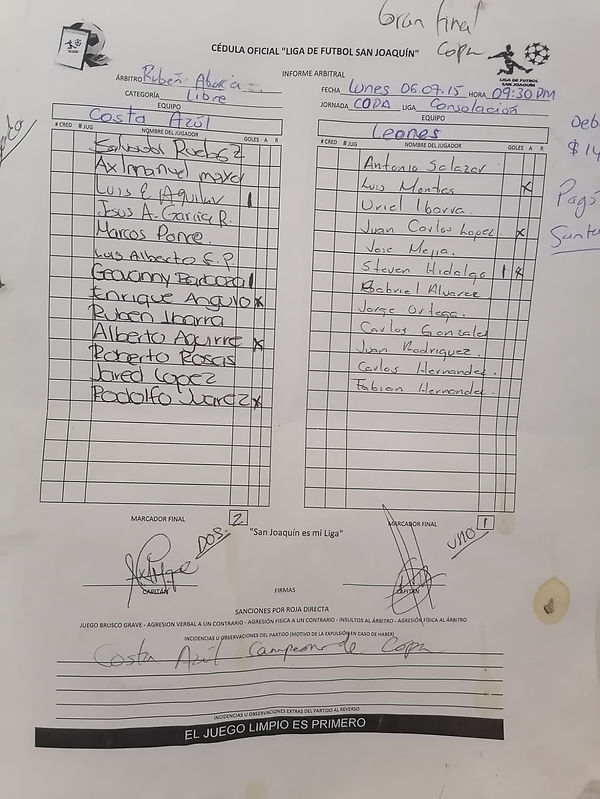 Gran final
Copa
CÉDULA OFICIAL "LIGA DE FUTBOL SAN JOAQUÍN"
LIGA DE FUTBOL
SAN JOAQUÍN
INFORME ARBITRAL
ÁRBITRO Rubén
CATEGORÍA Libre
EQUIPO
Costa Azúl
# CRED # JUG NOMBRE DEL JUGADOR GOLES A R
Salvador
Axlmanuel
Luis E Aguilar 1
Jesus A. Garcia R.
Marcos Ponce.
Luis Alberto S. P.
Geovanny Barboza 1
Enrique Angulo x
Ruben Ibarra
Alberto Aguirre x
Roberto Rosas
Jared Lopez
Rodolfo Juarez x
MARCADOR FINAL 2
DOS.
FECHA Lunes 06.07.15 HORA 09:30 PM
JORNADA COPA LIGA Consolación
EQUIPO
Leones
# CRED # JUG NOMBRE DEL JUGADOR GOLES A R
Antonio Salazar
Luis Montes x
Uriel Ibarra.
Juan Carlos Lopez x
Jose Mejia.
Steven Hidalgo 1 x
Gabriel Alvarez
Jorge Ortega.
Carlos Gonzalez
Juan Rodriguez.
Carlos Hernandez.
Fabian Hernandez.
MARCADOR FINAL 1
UNO
Deb
$ 14
Pagó
Santa
"San Joaquín es mi Liga"
CAPITÁN
FIRMAS
CAPITÁN
SANCIONES POR ROJA DIRECTA
JUEGO BRUSCO GRAVE - AGRESION VERBAL A UN CONTRARIO - AGRESIÓN FISICA A UN CONTRARIO - INSULTOS AL ÁRBITRO - AGRESIÓN FÍSICA AL ÁRBITRO
INCIDENCIAS U OBSERVACIONES DEL PARTIDO (MOTIVO DE LA EXPULSIÓN EN CASO DE HABER)
Costa Azúl Campeon de Copa
INCIDENCIAS U OBSERVACIONES EXTRAS DEL PARTIDO AL REVERSO
EL JUEGO LIMPIO ES PRIMERO